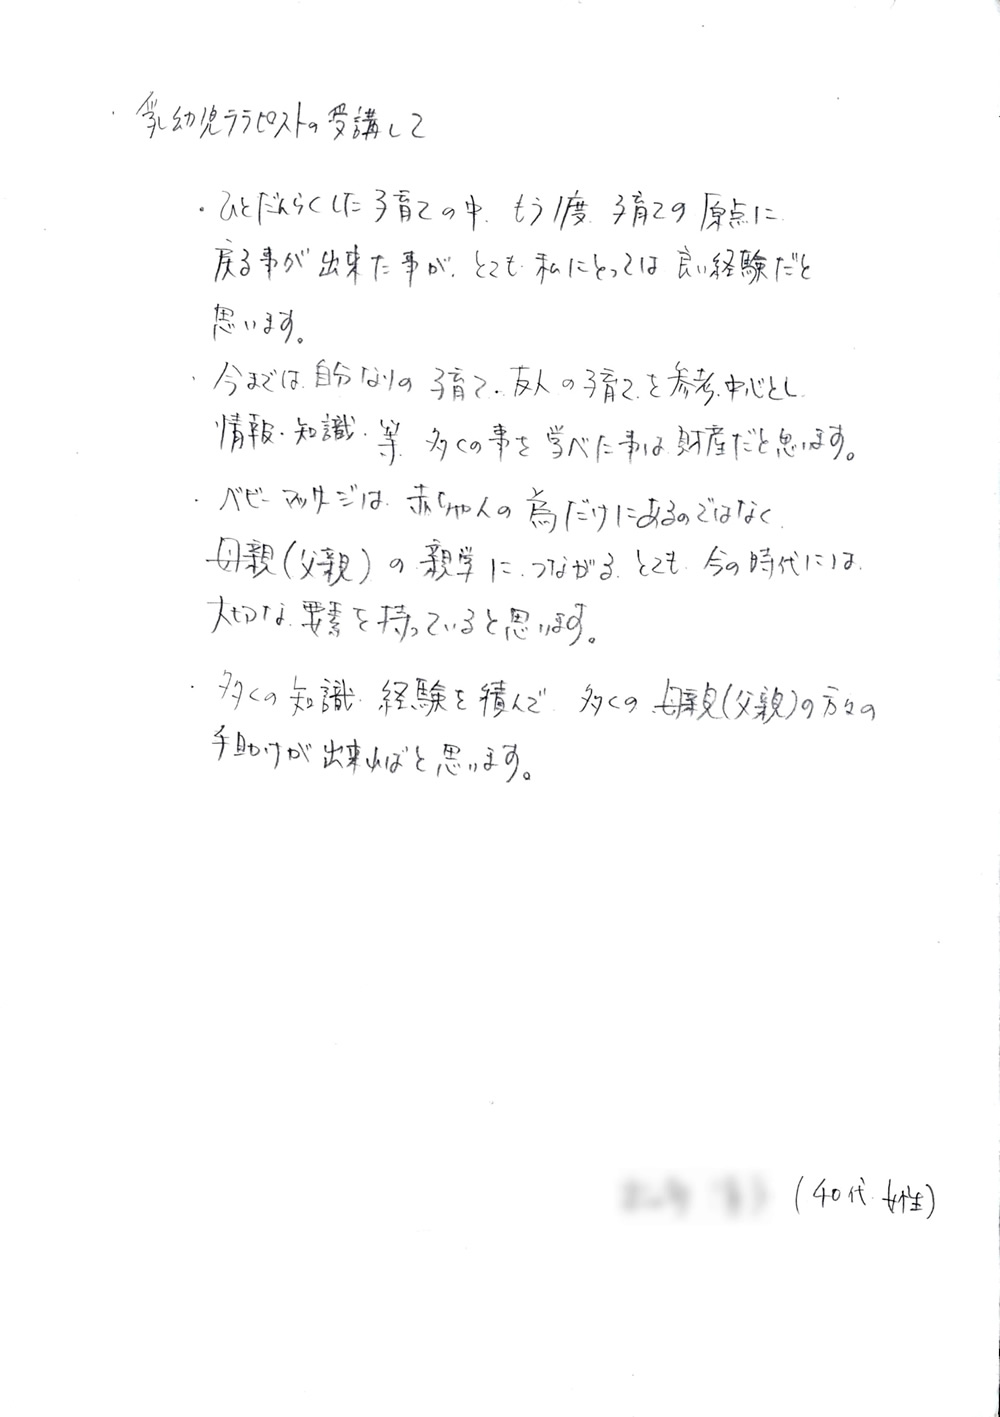 ・乳幼児ララピストの受講して
・ひとだんらくした子育ての中、もう1度、子育ての原点に
戻る事が出来た事が、とても私にとっては良い経験だと
思います。
・今までは、自分なりの子育て、友人の子育てを参考、中心とし
情報・知識・等、多くの事を学べた事は財産だと思います。
・ベビーマッサージは、赤ちゃんの為だけにあるのではなく
母親(父親)の親学に、つながる、とても、今の時代には、
大切な要素を持っていると思います。
・多くの知識・経験を積んで、多くの母親(父親)の方々の
手助けが出来ればと思います。
(40代 女性)